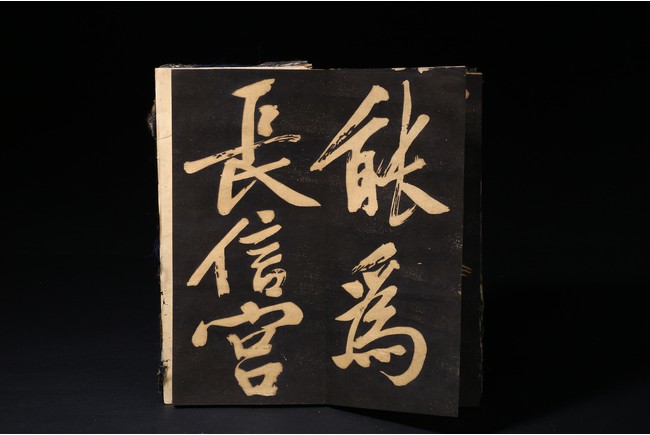 能為
長信宮